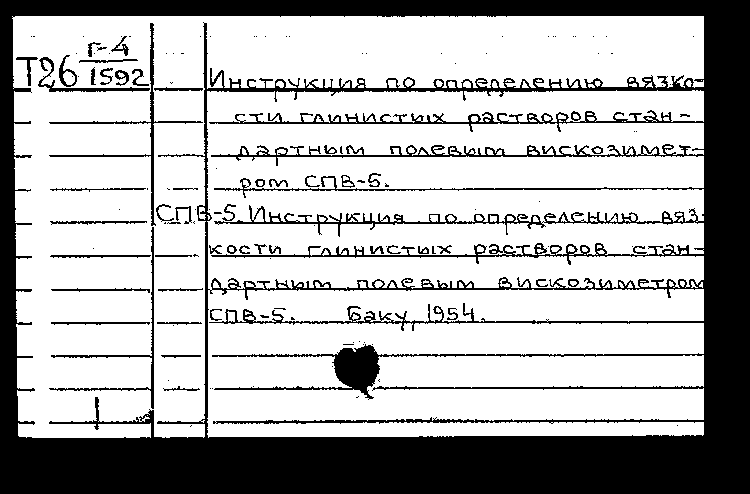 Т26 г-4
1592
Инструкция по определению вязко-
сти глинистых растворов стан-
дартным полевым вискозимет-
ром СПВ-5.
СПВ-5. Инструкция по определению вяз-
кости глинистых растворов стан-
дартным полевым вискозиметром
СПВ-5. Баку, 1954.